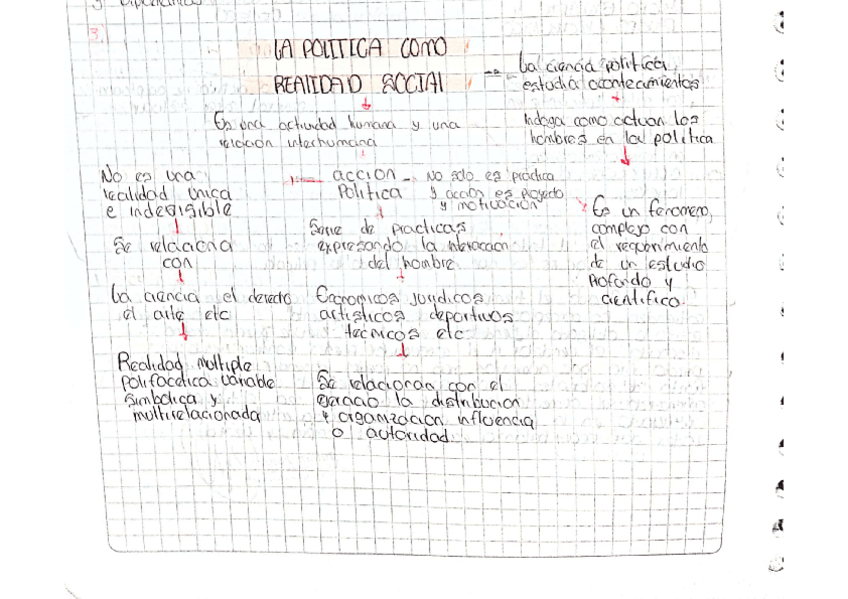 3
LA POLITICA COMO
REALIDAD SOCIAL
La ciencia politica
estudia acontecimientos
Es una actividad humana y una
relacion interhumana
Indaga como actuan los
hombres en la politica
No es una
realidad unica
e indegisible
accion
Politica
No solo es practica
y acción es proyecto
y motivación
Es un fenomeno,
complejo con
el requerimiento
de un estudio
Profundo y
cientifico.
Se relaciona
con
Serie de practicas
expresando la interaccion
del hombre
La ciencia el derecho
el arte etc
Economicos juridicos
artisticos deportivos
tecnicos etc
Realidad multiple
polifacetica variable
simbolica y
multirelacionada
Se relacionan con el
ejercicio la distribucion
y organizacion influencia
o autoridad